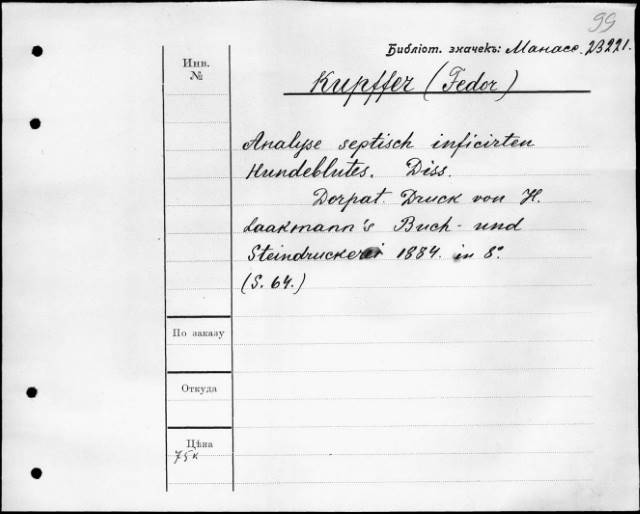 99
Библіот. значекъ: Манасе. 23221.
Инв.
№
Kupffer (Fedor)
Analyse septisch inficirten
Hundeblutes. Diss.
Dorpat. Druck von H.
Laakmann's Buch- und
Steindruckerei 1884. in 8°
(S. 64.)
По заказу
Откуда
Цѣна
75 к